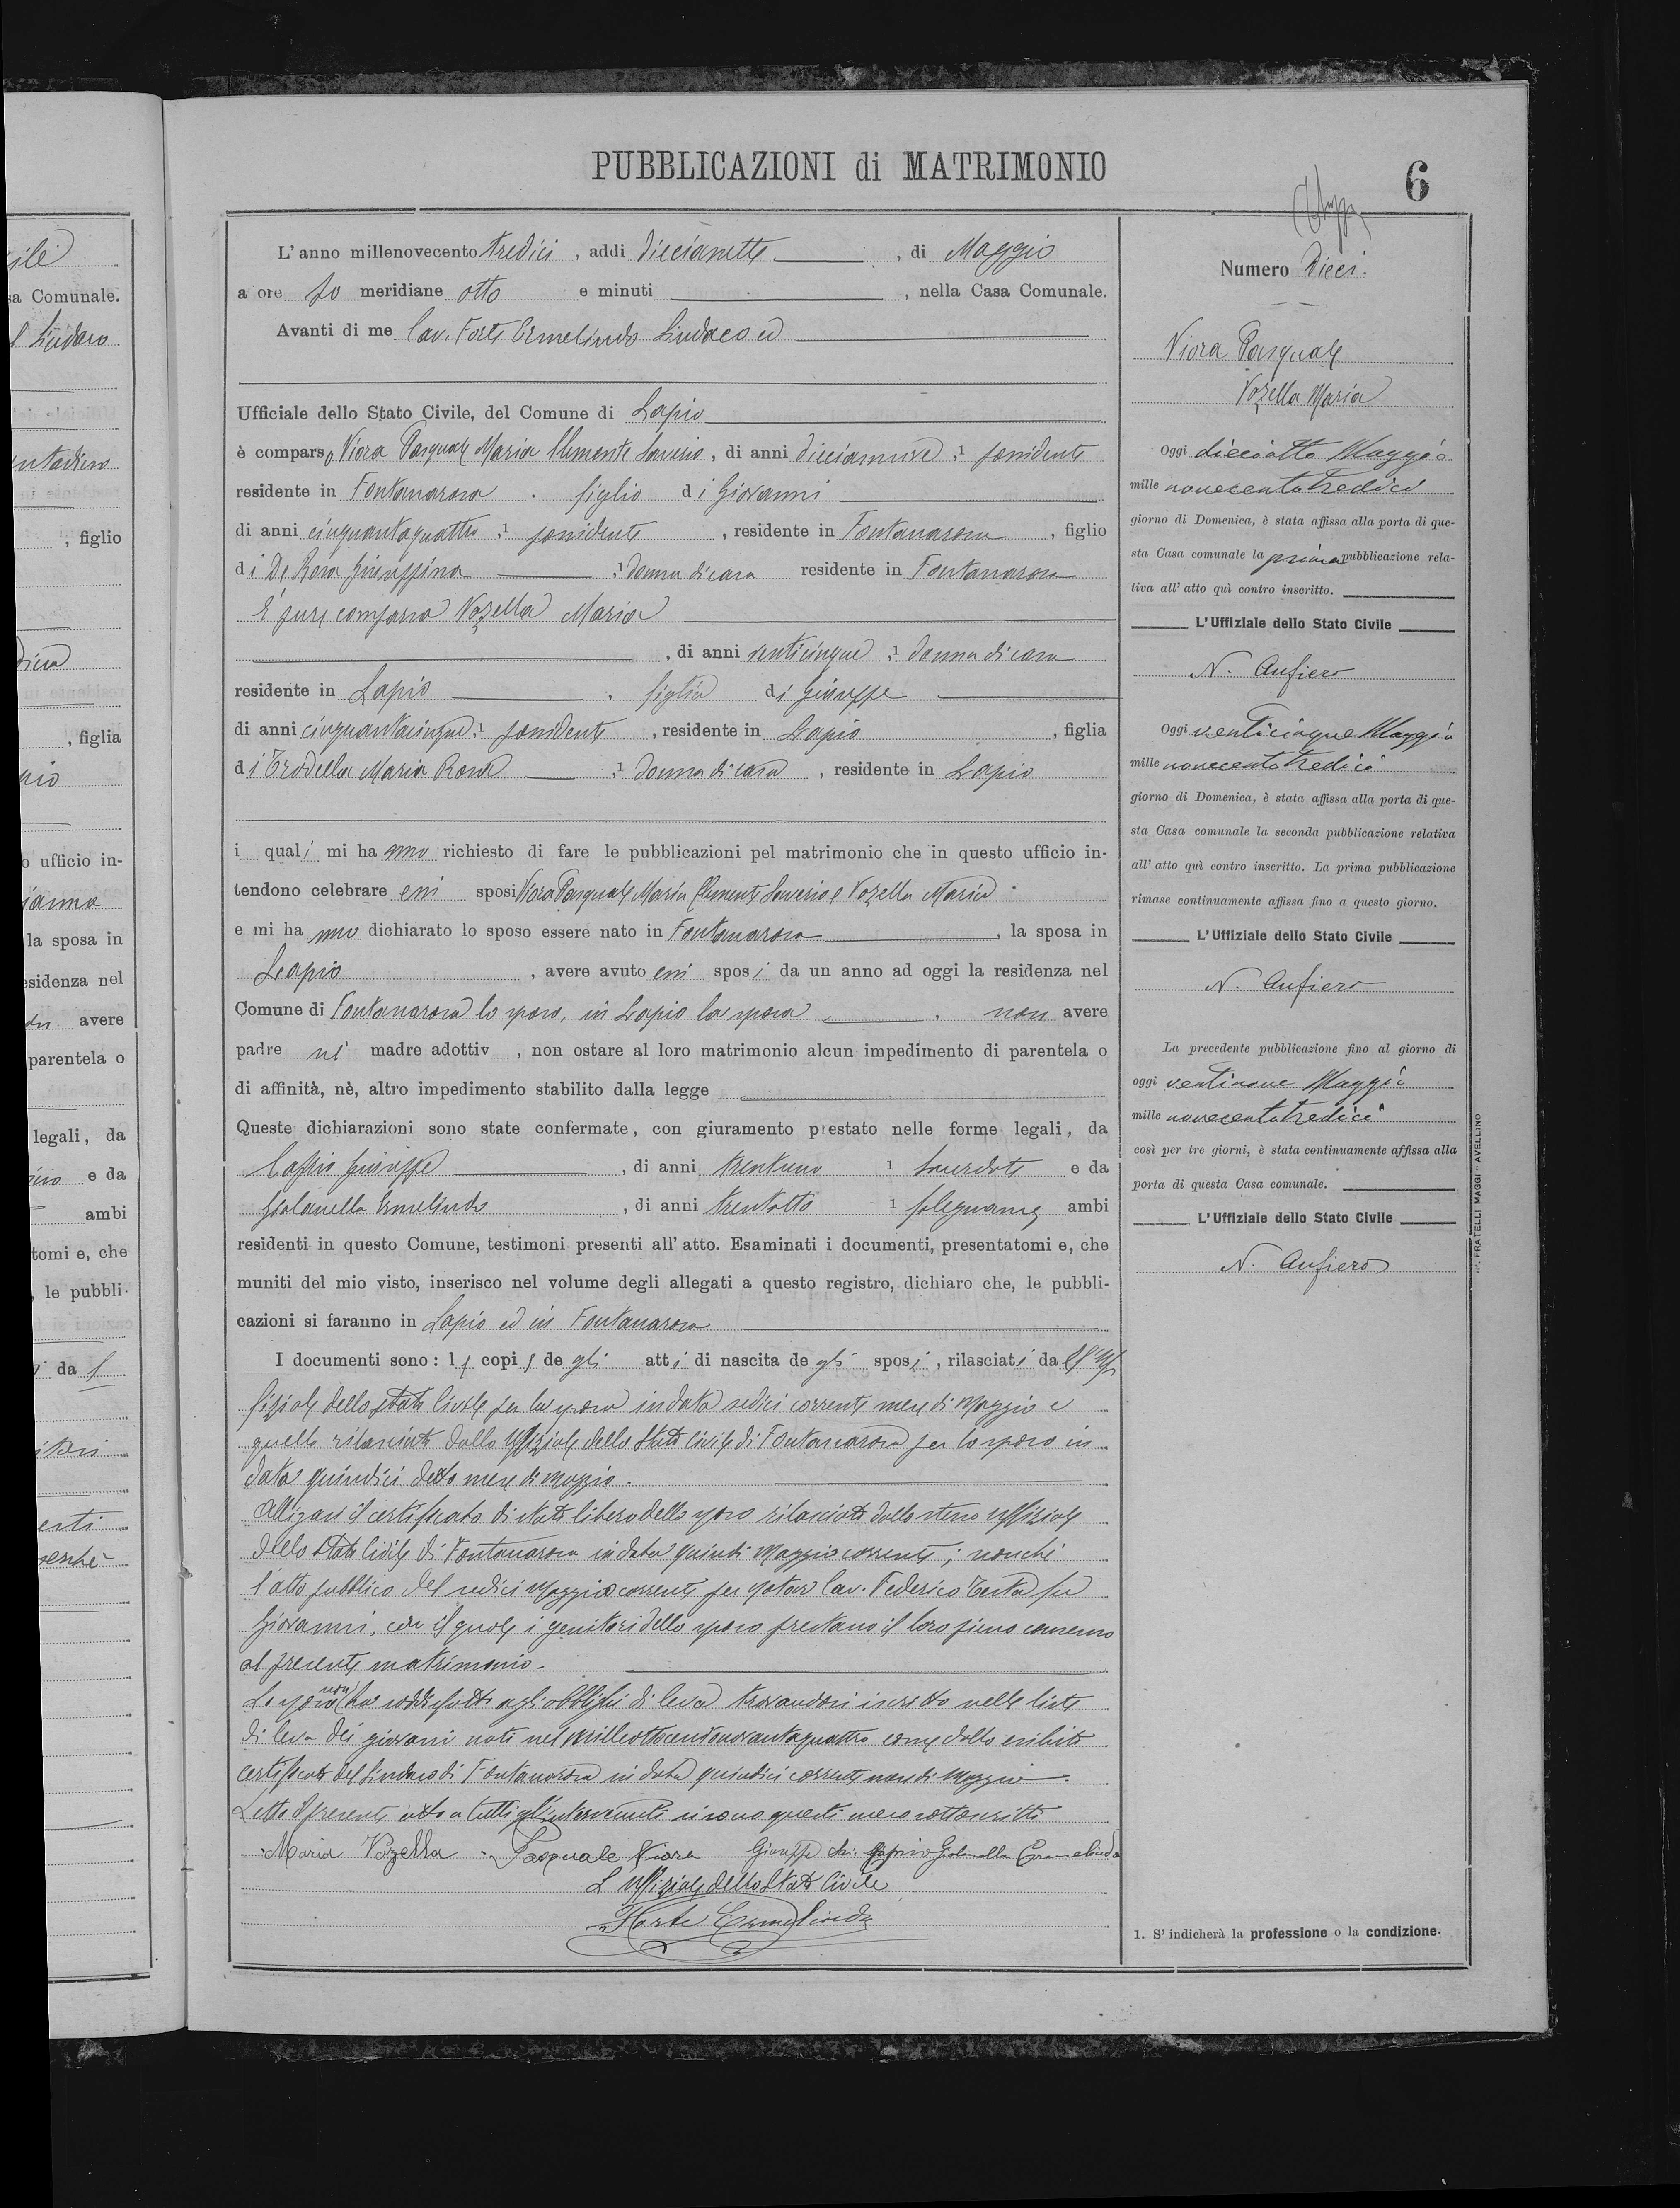 PUBBLICAZIONI di MATRIMONIO
6
L'anno millenovecento tredici, addi diecisette, di Maggio
a ore po meridiane otto e minuti, nella Casa Comunale.
Avanti di me Cav. Forte Ermelindo Sindaco ed
Ufficiale dello Stato Civile, del Comune di Lapio
è comparso Niora Pasquale Maria Clemente Saverio, di anni diecianove 1 possidente
residente in Fontanarosa. figlio di Giovanni
di anni cinquantaquattro 1 possidente, residente in Fontanarosa, figlio
di De Rosa Giuseppina 1 donna di casa residente in Fontanarosa
È pure comparsa Vozella Maria
, di anni venticinque 1 donna di casa
residente in Lapio. figlia di Giuseppe
di anni cinquantacinque 1 possidente, residente in Lapio, figlia
di Trodella Maria Rosa 1 donna di casa, residente in Lapio
i quali mi hanno richiesto di fare le pubblicazioni pel matrimonio che in questo ufficio in-
tendono celebrare essi sposi Niora Pasquale Maria Clemente Saverio e Vozella Maria
e mi hanno dichiarato lo sposo essere nato in Fontanarosa, la sposa in
Lapio, avere avuto essi sposi da un anno ad oggi la residenza nel
Comune di Fontanarosa lo sposo, in Lapio la sposa. non avere
padre nè madre adottiv, non ostare al loro matrimonio alcun impedimento di parentela o
di affinità, nè, altro impedimento stabilito dalla legge
Queste dichiarazioni sono state confermate, con giuramento prestato nelle forme legali, da
Giuseppe, di anni trentuno 1 Sacerdote e da
Giolanella Ermelindo, di anni trentotto 1 falegname ambi
residenti in questo Comune, testimoni presenti all'atto. Esaminati i documenti, presentatomi e, che
muniti del mio visto, inserisco nel volume degli allegati a questo registro, dichiaro che, le pubbli-
cazioni si faranno in Lapio ed in Fontanarosa
I documenti sono: le copie degli atti di nascita degli sposi, rilasciati dall'Uf
fiziale dello Stato Civile per la sposa in data sedici corrente mese di Maggio e
quella rilasciata dallo Uffiziale dello Stato Civile di Fontanarosa per lo sposo in
data quindici detto mese di Maggio.
Alligasi il certificato di stato libero dello sposo rilasciato dallo stesso Uffiziale
dello Stato Civile di Fontanarosa in data quindi Maggio corrente; nonchè
l'atto pubblico del sedici Maggio corrente per Notar Cav. Federico Testa fu
Giovanni, con il quale i genitori dello sposo prestano il loro pieno consenso
al presente matrimonio.
Lo sposo non ha soddisfatto agli obblighi di leva trovandosi iscritto nelle liste
di leva dei giovani nati nel milleottocentonovantaquattro come dallo esibito
certificato del Sindaco di Fontanarosa in data quindici corrente mese di Maggio.
Letto il presente atto a tutti gl'intervenuti si sono questi meco sottoscritti
Maria Vozella. Pasquale Niora Giuseppe Giolanella Ermelindo
L'Uffiziale dello Stato Civile
Forte Ermelindo
Numero Dieci.
Niora Pasquale
Vozella Maria
Oggi dieciotto Maggio
mille novecentotredici
giorno di Domenica, è stata affissa alla porta di que-
sta Casa comunale la prima pubblicazione rela-
tiva all'atto quì contro inscritto.
L'Uffiziale dello Stato Civile
N. Aufiero
Oggi venticinque Maggio
mille novecentotredici
giorno di Domenica, è stata affissa alla porta di que-
sta Casa comunale la seconda pubblicazione relativa
all'atto quì contro inscritto. La prima pubblicazione
rimase continuamente affissa fino a questo giorno.
L'Uffiziale dello Stato Civile
N. Aufiero
La precedente pubblicazione fino al giorno di
oggi ventinove Maggio
mille novecentotredici
così per tre giorni, è stata continuamente affissa alla
porta di questa Casa comunale.
L'Uffiziale dello Stato Civile
N. Aufiero
1. S'indicherà la professione o la condizione.
FRATELLI MAGGI - AVELLINO
sa Comunale.
l Sindaco
, figlio
, figlia
o ufficio in-
la sposa in
esidenza nel
avere
parentela o
legali, da
e da
ambi
tomi e, che
, le pubbli-
da